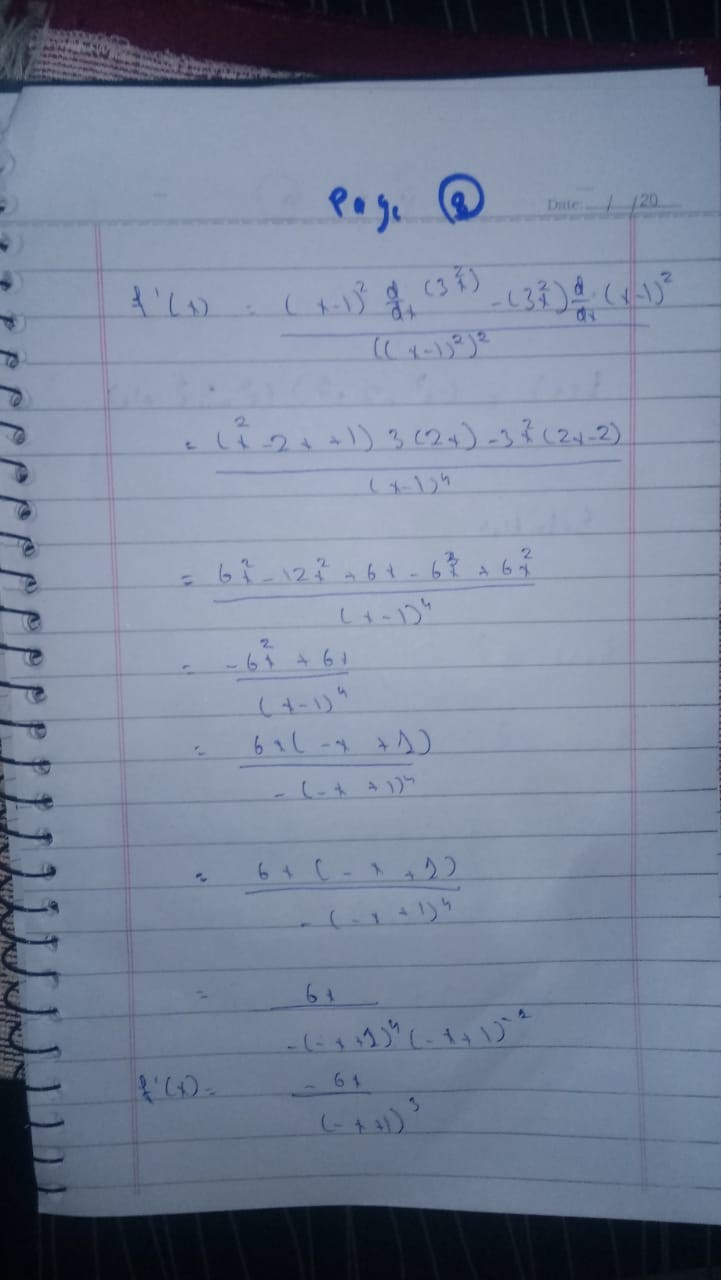 Page 2
Date: / /20
f'(x) = ((x-1)² d/dx (3x²) - (3x²) d/dx (x-1)²) / ((x-1)²)²
= ((x²-2x+1) 3(2x) - 3x²(2x-2)) / (x-1)⁴
= (6x² - 12x² + 6x - 6x³ + 6x²) / (x-1)⁴
= (-6x² + 6x) / (x-1)⁴
= 6x(-x+1) / -(-x+1)⁴
= 6x(-x+1) / -(-x+1)⁴
= 6x / -(-x+1)⁴(-x+1)⁻¹
f'(x) = -6x / (-x+1)³